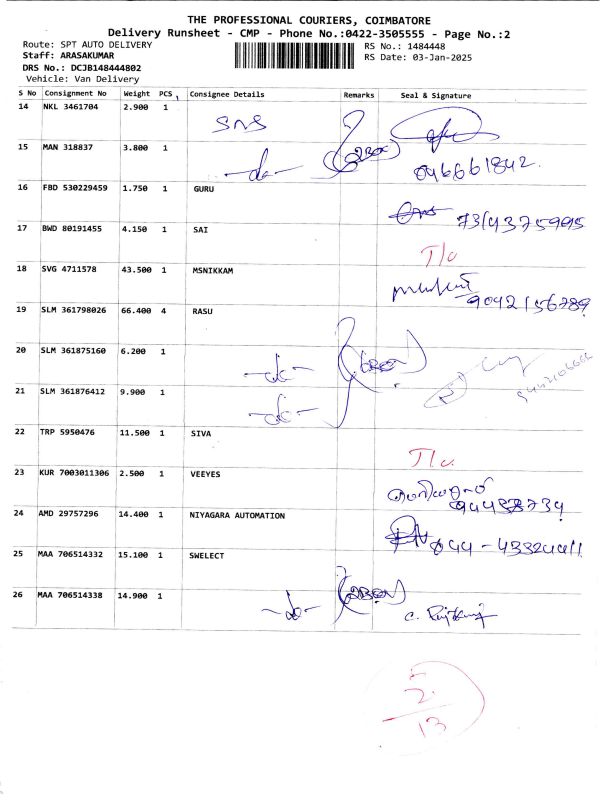 THE PROFESSIONAL COURIERS, COIMBATORE
Delivery Runsheet - CMP - Phone No.:0422-3505555 - Page No.:2
Route: SPT AUTO DELIVERY
RS No.: 1484448
Staff: ARASAKUMAR
RS Date: 03-Jan-2025
DRS No.: DCJB148444802
Vehicle: Van Delivery
S No Consignment No Weight PCS Consignee Details Remarks Seal & Signature
14 NKL 3461704 2.900 1 SNS
15 MAN 318837 3.800 1 -do-
16 FBD 530229459 1.750 1 GURU
17 BWD 80191455 4.150 1 SAI
18 SVG 4711578 43.500 1 MSNIKKAM
19 SLM 361798026 66.400 4 RASU 9042156789
20 SLM 361875160 6.200 1 -do-
21 SLM 361876412 9.900 1 -do-
22 TRP 5950476 11.500 1 SIVA
23 KUR 7003011306 2.500 1 VEEYES
24 AMD 29757296 14.400 1 NIYAGARA AUTOMATION
25 MAA 706514332 15.100 1 SWELECT
26 MAA 706514338 14.900 1 -do-
2
13